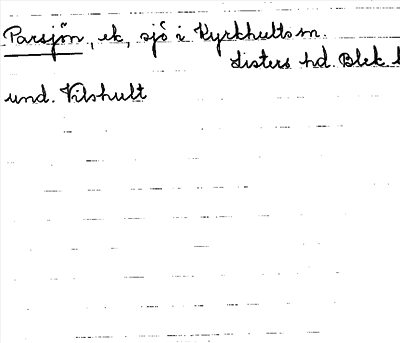 Parsjön, ek, sjö i Kyrkhults sn.
Listers hd. Blek l
und. Vilshult